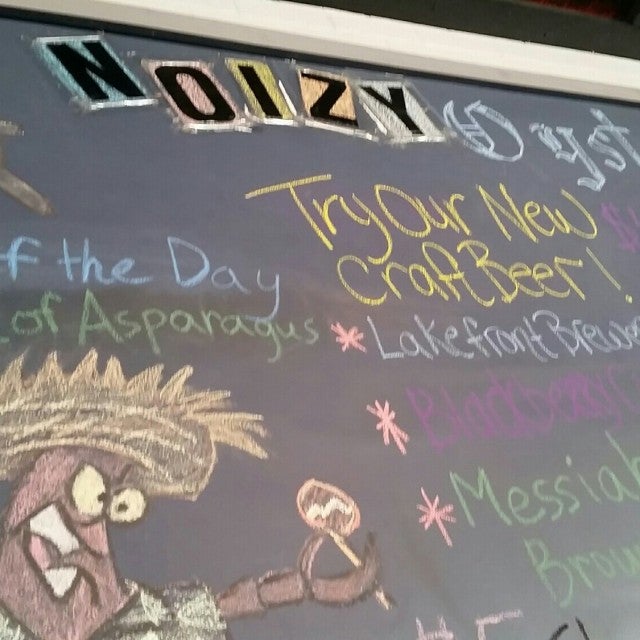 NOIZY Oyst
Try Our New
Craft Beer!
f the Day
of Asparagus
* Lakefront Brewe
* Blackberry
* Messiah
Brow